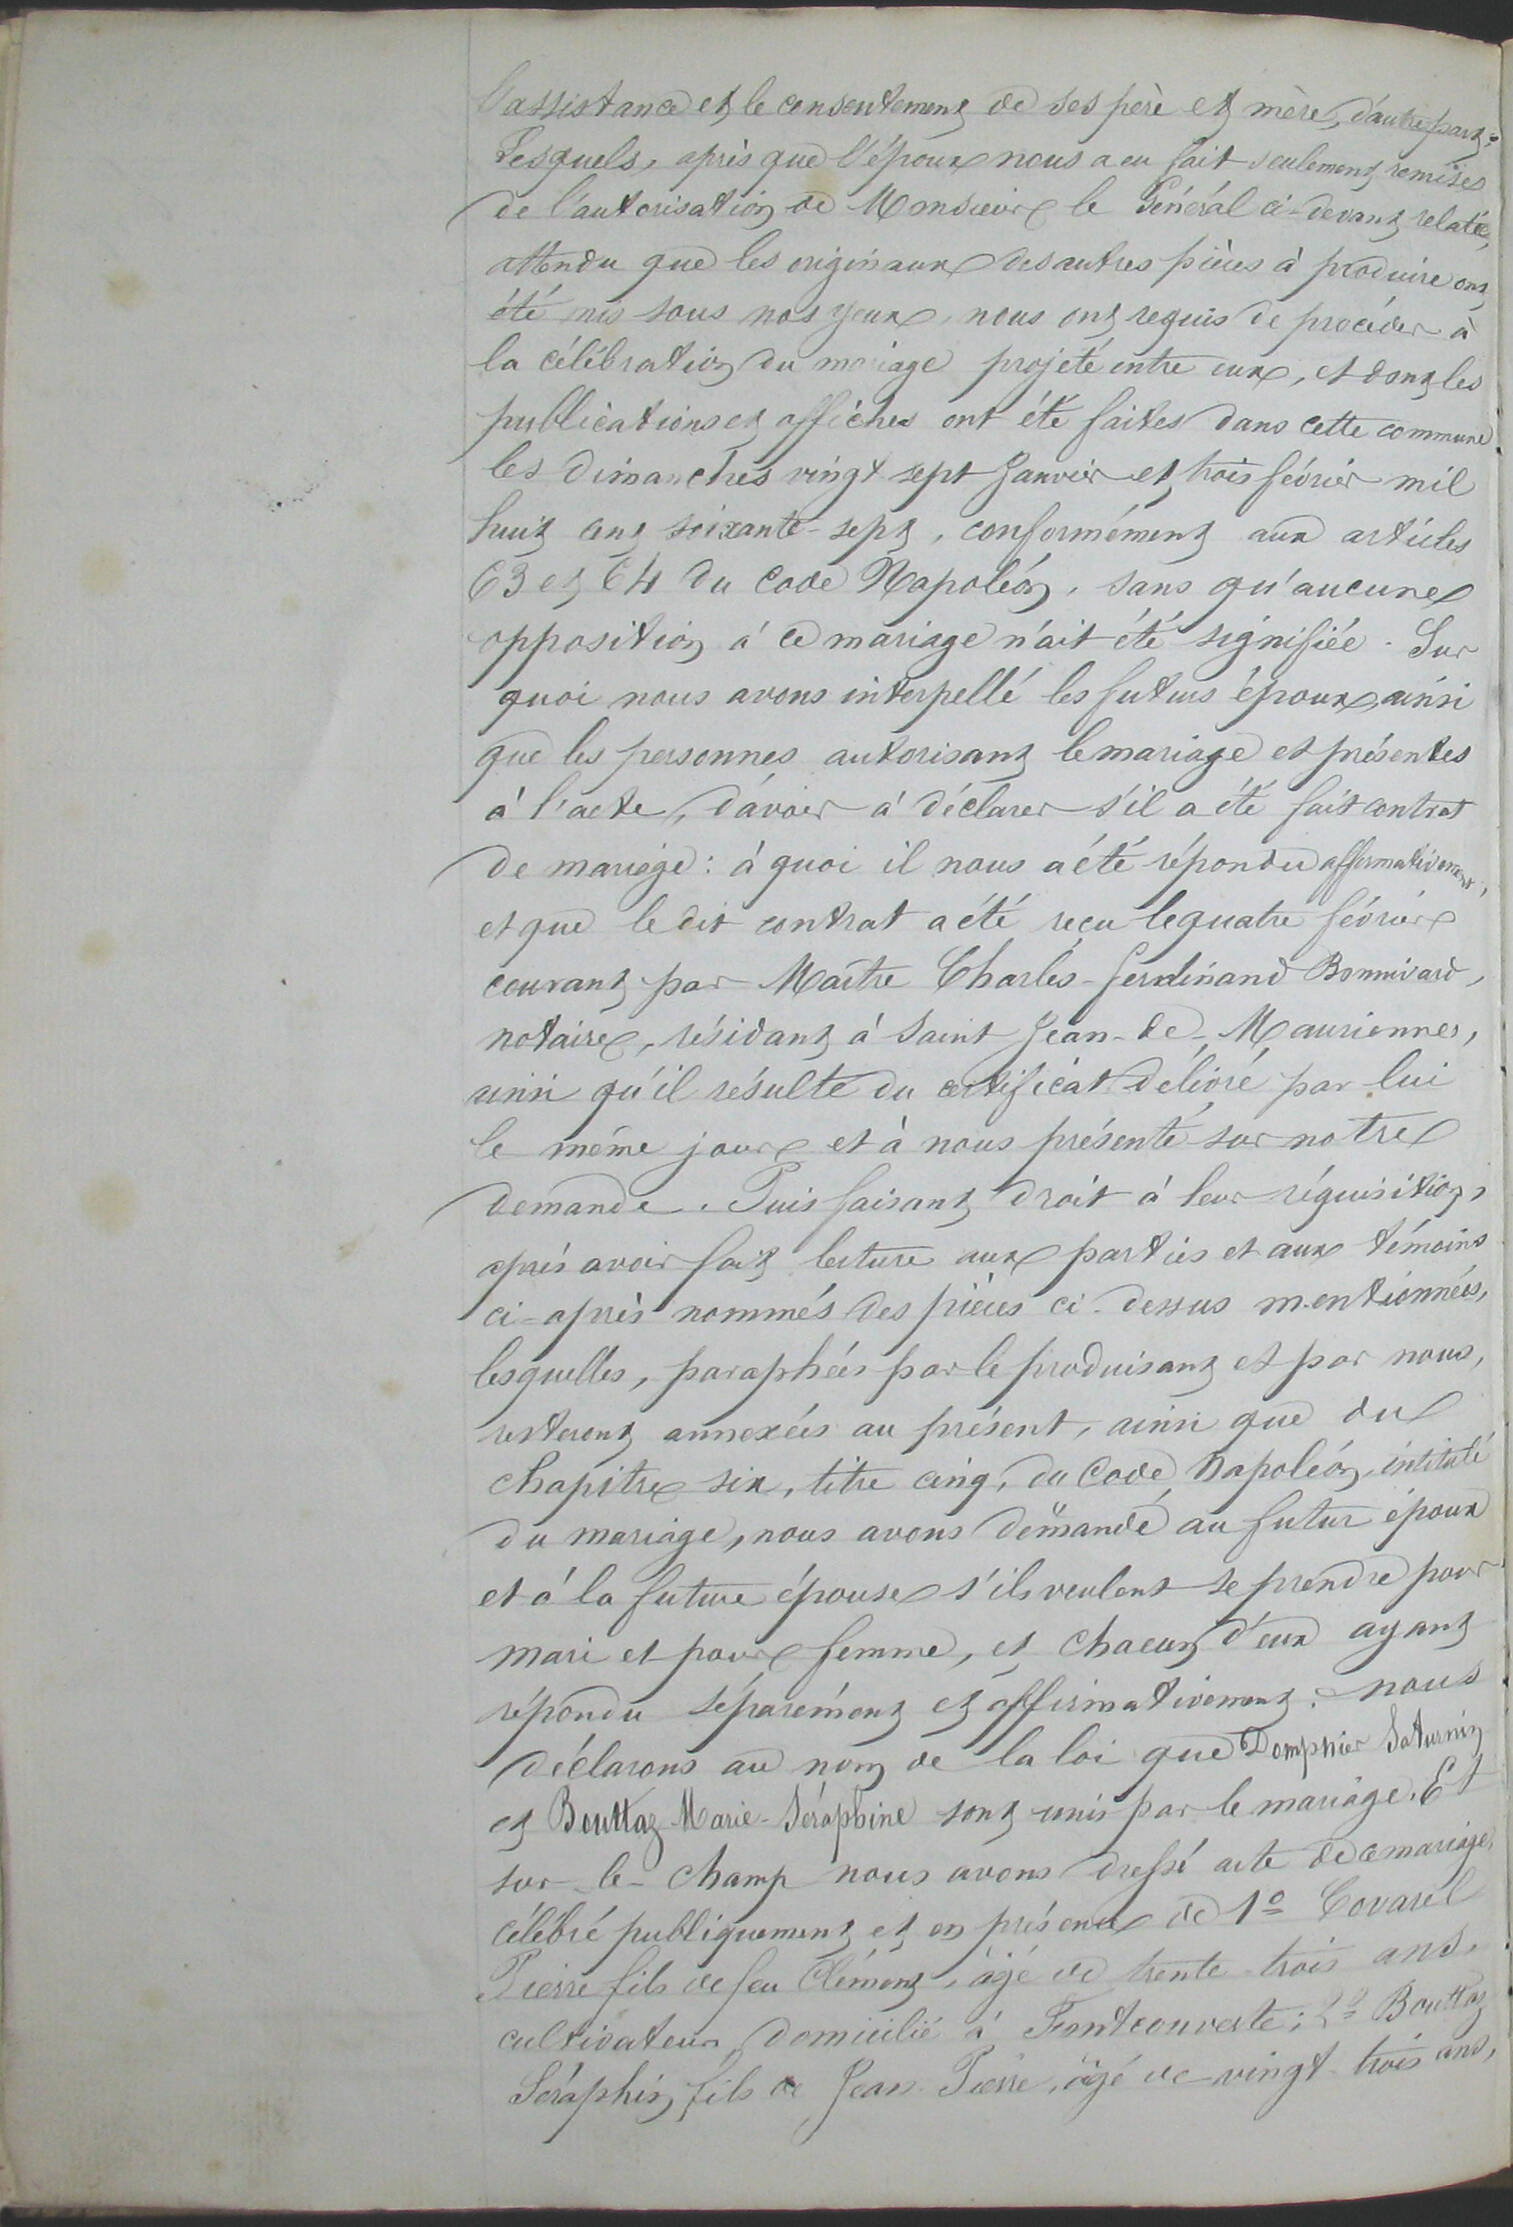 l'assistance et le consentement de ses père et mère, d'autre part;
Lesquels, après que l'époux nous a eu fait seulement remise
de l'autorisation de Monsieur le Général ci-devant relatée,
attendu que les originaux des autres pièces à produire ont
été mis sous nos yeux, nous ont requis de procéder à
la célébration du mariage projeté entre eux, et dont les
publications et affiches ont été faites dans cette commune
les dimanches vingt sept Janvier et trois février mil
huit cent soixante-sept, conformément aux articles
63 et 64 du Code Napoléon, sans qu'aucune
opposition à ce mariage n'ait été signifiée. Sur
quoi nous avons interpellé les futurs époux, ainsi
que les personnes autorisant le mariage et présentes
à l'acte, d'avoir à déclarer s'il a été fait contrat
de mariage: à quoi il nous a été répondu affirmativement,
et que le dit contrat a été reçu le quatre février
courant par Maître Charles-Ferdinand Bonnivard,
notaire, résidant à Saint Jean-de-Maurienne,
ainsi qu'il résulte du certificat délivré par lui
le même jour et à nous présenté sur notre
demande. Puis faisant droit à leur réquisition,
après avoir fait lecture aux parties et aux témoins
ci-après nommés des pièces ci-dessus mentionnées,
lesquelles, paraphées par le produisant et par nous,
resteront annexées au présent, ainsi que du
chapitre six, titre cinq, du Code Napoléon, intitulé
du mariage, nous avons demandé au futur époux
et à la future épouse s'ils veulent se prendre pour
mari et pour femme, et chacun d'eux ayant
répondu séparément et affirmativement: nous
déclarons au nom de la loi que Dompnier Saturnin
et Bouttaz Marie-Séraphine sont unis par le mariage. Et
sur-le-champ nous avons dressé acte de ce mariage,
célébré publiquement et en présence de 1º Covarel
Pierre fils de feu Clément, âgé de trente-trois ans,
cultivateur domicilié à Fontcouverte; 2º Bouttaz
Séraphin, fils de Jean Pierre, âgé de vingt-trois ans,